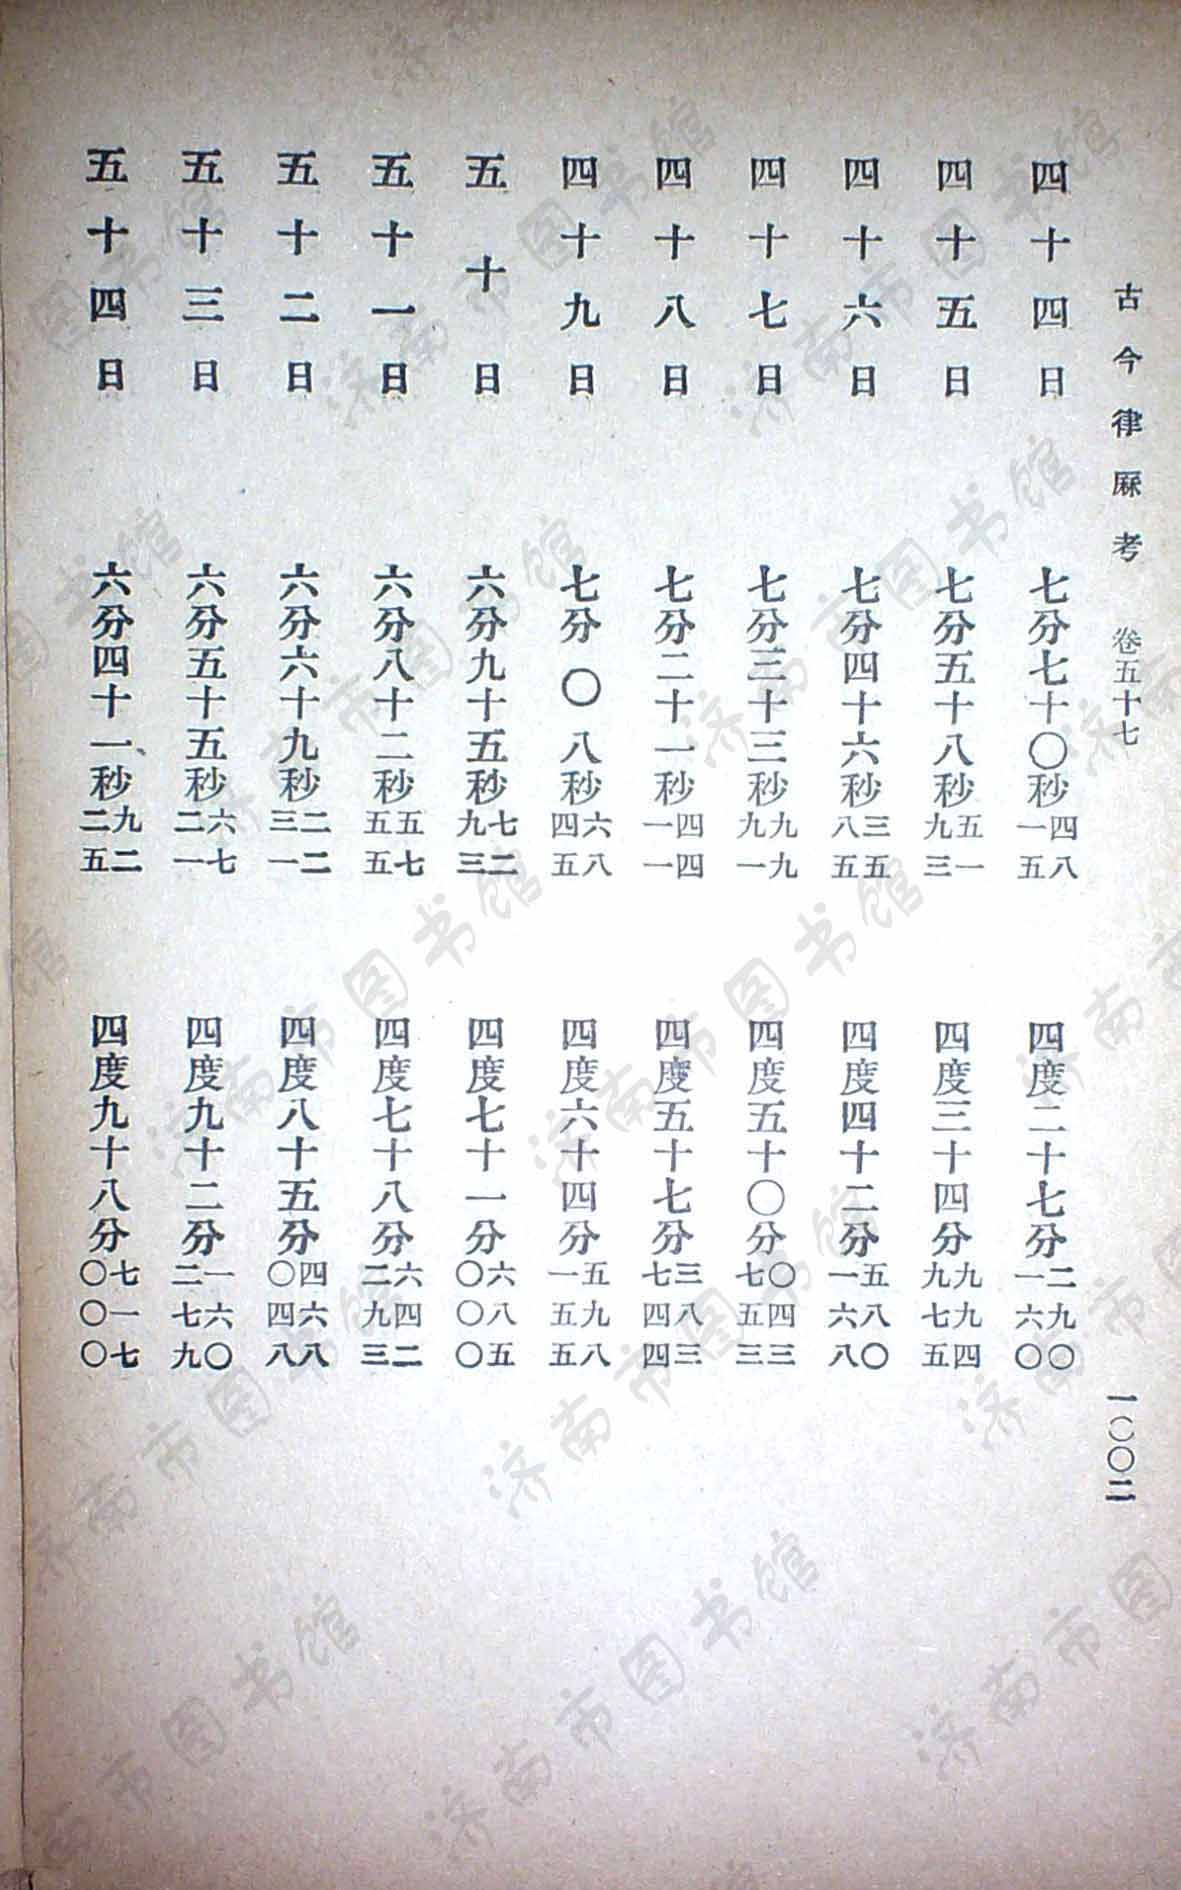 古今律厤考 卷五十七 一〇〇二
四十四日 七分七十〇秒四八一五 四度二十七分二九〇一六〇
四十五日 七分五十八秒五一九三 四度三十四分九九四九七五
四十六日 七分四十六秒三五八五 四度四十二分五八〇一六八
四十七日 七分三十三秒九九九一 四度五十〇分〇四三七五三
四十八日 七分二十一秒四四一一 四度五十七分三八三七四四
四十九日 七分〇八秒六八四五 四度六十四分五九八一五五
五十日 六分九十五秒七二九三 四度七十一分六八五〇〇〇
五十一日 六分八十二秒五七五五 四度七十八分六四二二九三
五十二日 六分六十九秒二二三一 四度八十五分四六八〇四八
五十三日 六分五十五秒六七二一 四度九十二分一六〇二七九
五十四日 六分四十一秒九二二五 四度九十八分七一七〇〇〇
济南市图书馆